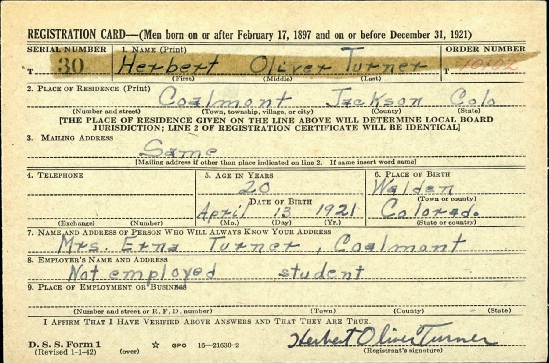 REGISTRATION CARD—(Men born on or after February 17, 1897 and on or before December 31, 1921)
SERIAL NUMBER 1. NAME (Print) ORDER NUMBER
T 30 Herbert Oliver Turner T
(First) (Middle) (Last)
2. PLACE OF RESIDENCE (Print)
Coalmont Jackson Colo
(Number and street) (Town, township, village, or city) (County) (State)
[THE PLACE OF RESIDENCE GIVEN ON THE LINE ABOVE WILL DETERMINE LOCAL BOARD
JURISDICTION; LINE 2 OF REGISTRATION CERTIFICATE WILL BE IDENTICAL]
3. MAILING ADDRESS
Same
[Mailing address if other than place indicated on line 2. If same insert word same]
4. TELEPHONE 5. AGE IN YEARS 6. PLACE OF BIRTH
20 Walden
DATE OF BIRTH (Town or county)
April 13 1921 Colorado.
(Exchange) (Number) (Mo.) (Day) (Yr.) (State or country)
7. NAME AND ADDRESS OF PERSON WHO WILL ALWAYS KNOW YOUR ADDRESS
Mrs. Erna Turner, Coalmont
8. EMPLOYER'S NAME AND ADDRESS
Not employed student
9. PLACE OF EMPLOYMENT OR BUSINESS
(Number and street or R. F. D. number) (Town) (County) (State)
I AFFIRM THAT I HAVE VERIFIED ABOVE ANSWERS AND THAT THEY ARE TRUE.
D. S. S. Form 1 Herbert Oliver Turner
(Revised 1-1-42) (over) ☆ GPO 16—21630-2 (Registrant's signature)